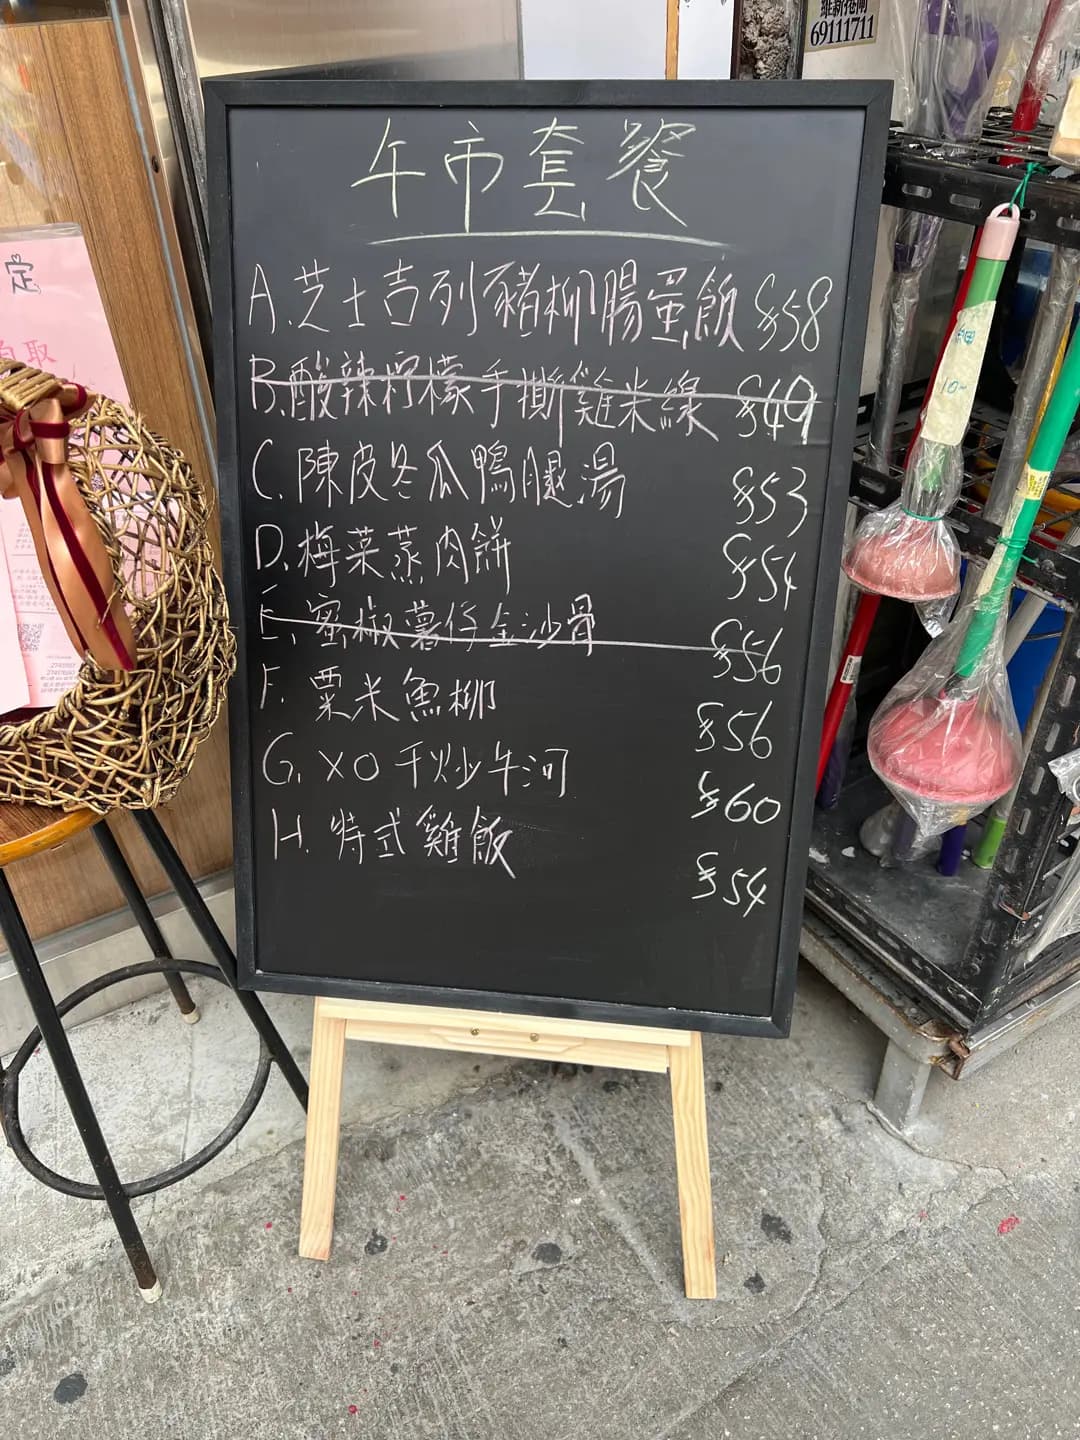 維新捲閘
69111711
定
自取
午市套餐
A.芝士吉列豬柳腸蛋飯 $58
B.酸辣檸檬手撕雞米線 $49
C.陳皮冬瓜鴨腿湯 $53
D.梅菜蒸肉餅 $54
E.蜜椒薯仔金沙骨 $56
F.粟米魚柳 $56
G.XO干炒牛河 $60
H.特式雞飯 $54